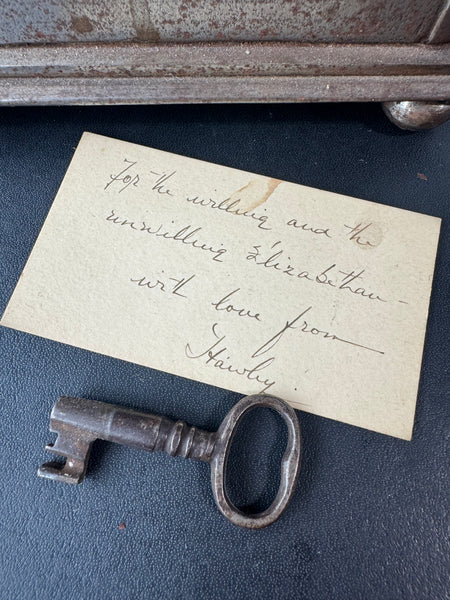 For the willing and the
unwilling Elizabethan -
with love from
Hawley.